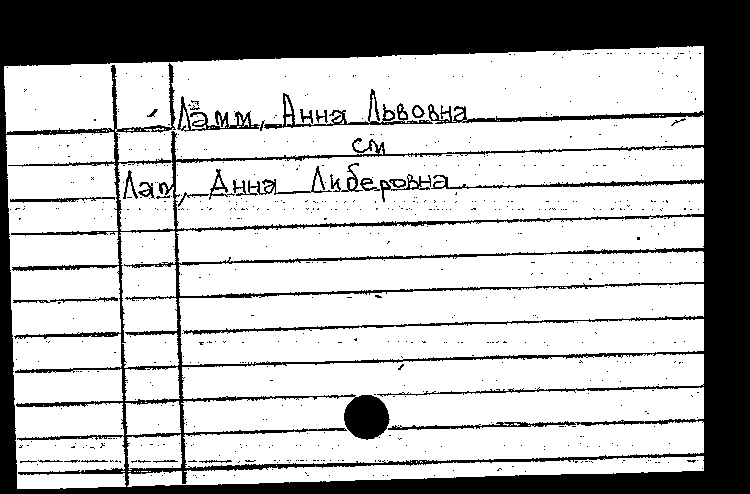 Ламм, Анна Львовна
см
Лап, Анна Либеровна.